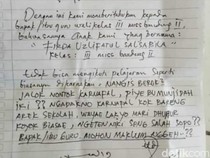 Dengan ini kami memberitahukan kepada
bapak/ibu guru wali kelas III MIES bandung II
bahwasannya anak kami yang bernama :
"FINDA UZLIFATUL SALSABILA"
kelas : III MIES bandung II
tidak bisa mengikuti pelajaran seperti
biasanya dikarenakan " NANGIS BUREK2
JALOK MONTOR KARNAPAL, PIYE BUMUNJIDAH
IKI ?? NGADAKNO KARNAPAL KOK BARENG
AREK SEKOLAH, WAYAH LARYO MARI DHUHUR
KOYOK BIASAE, NGETEN NIKI SINTEN SALAH SOPO ??
BAPAK/IBU GURU MOHON MAKLUM NGGEH~
detikcom